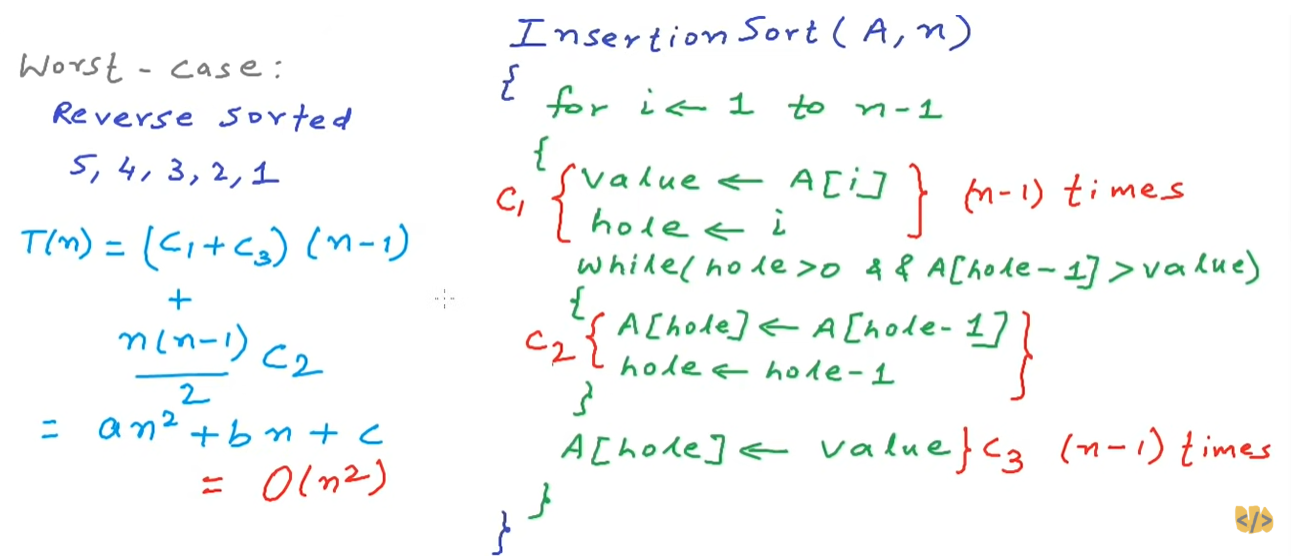 Worst - case:
Reverse sorted
5, 4, 3, 2, 1
T(n) = (C₁ + C₃) (n-1)
+
n(n-1)/2 C₂
= an² + bn + c
= O(n²)
Insertion Sort ( A, n )
{
for i ← 1 to n-1
{
C₁ { value ← A[i] } (n-1) times
hole ← i
while( hole > 0 && A[hole-1] > value)
{
C₂ { A[hole] ← A[hole-1] }
hole ← hole-1
}
A[hole] ← value } C₃ (n-1) times
}
}
</>